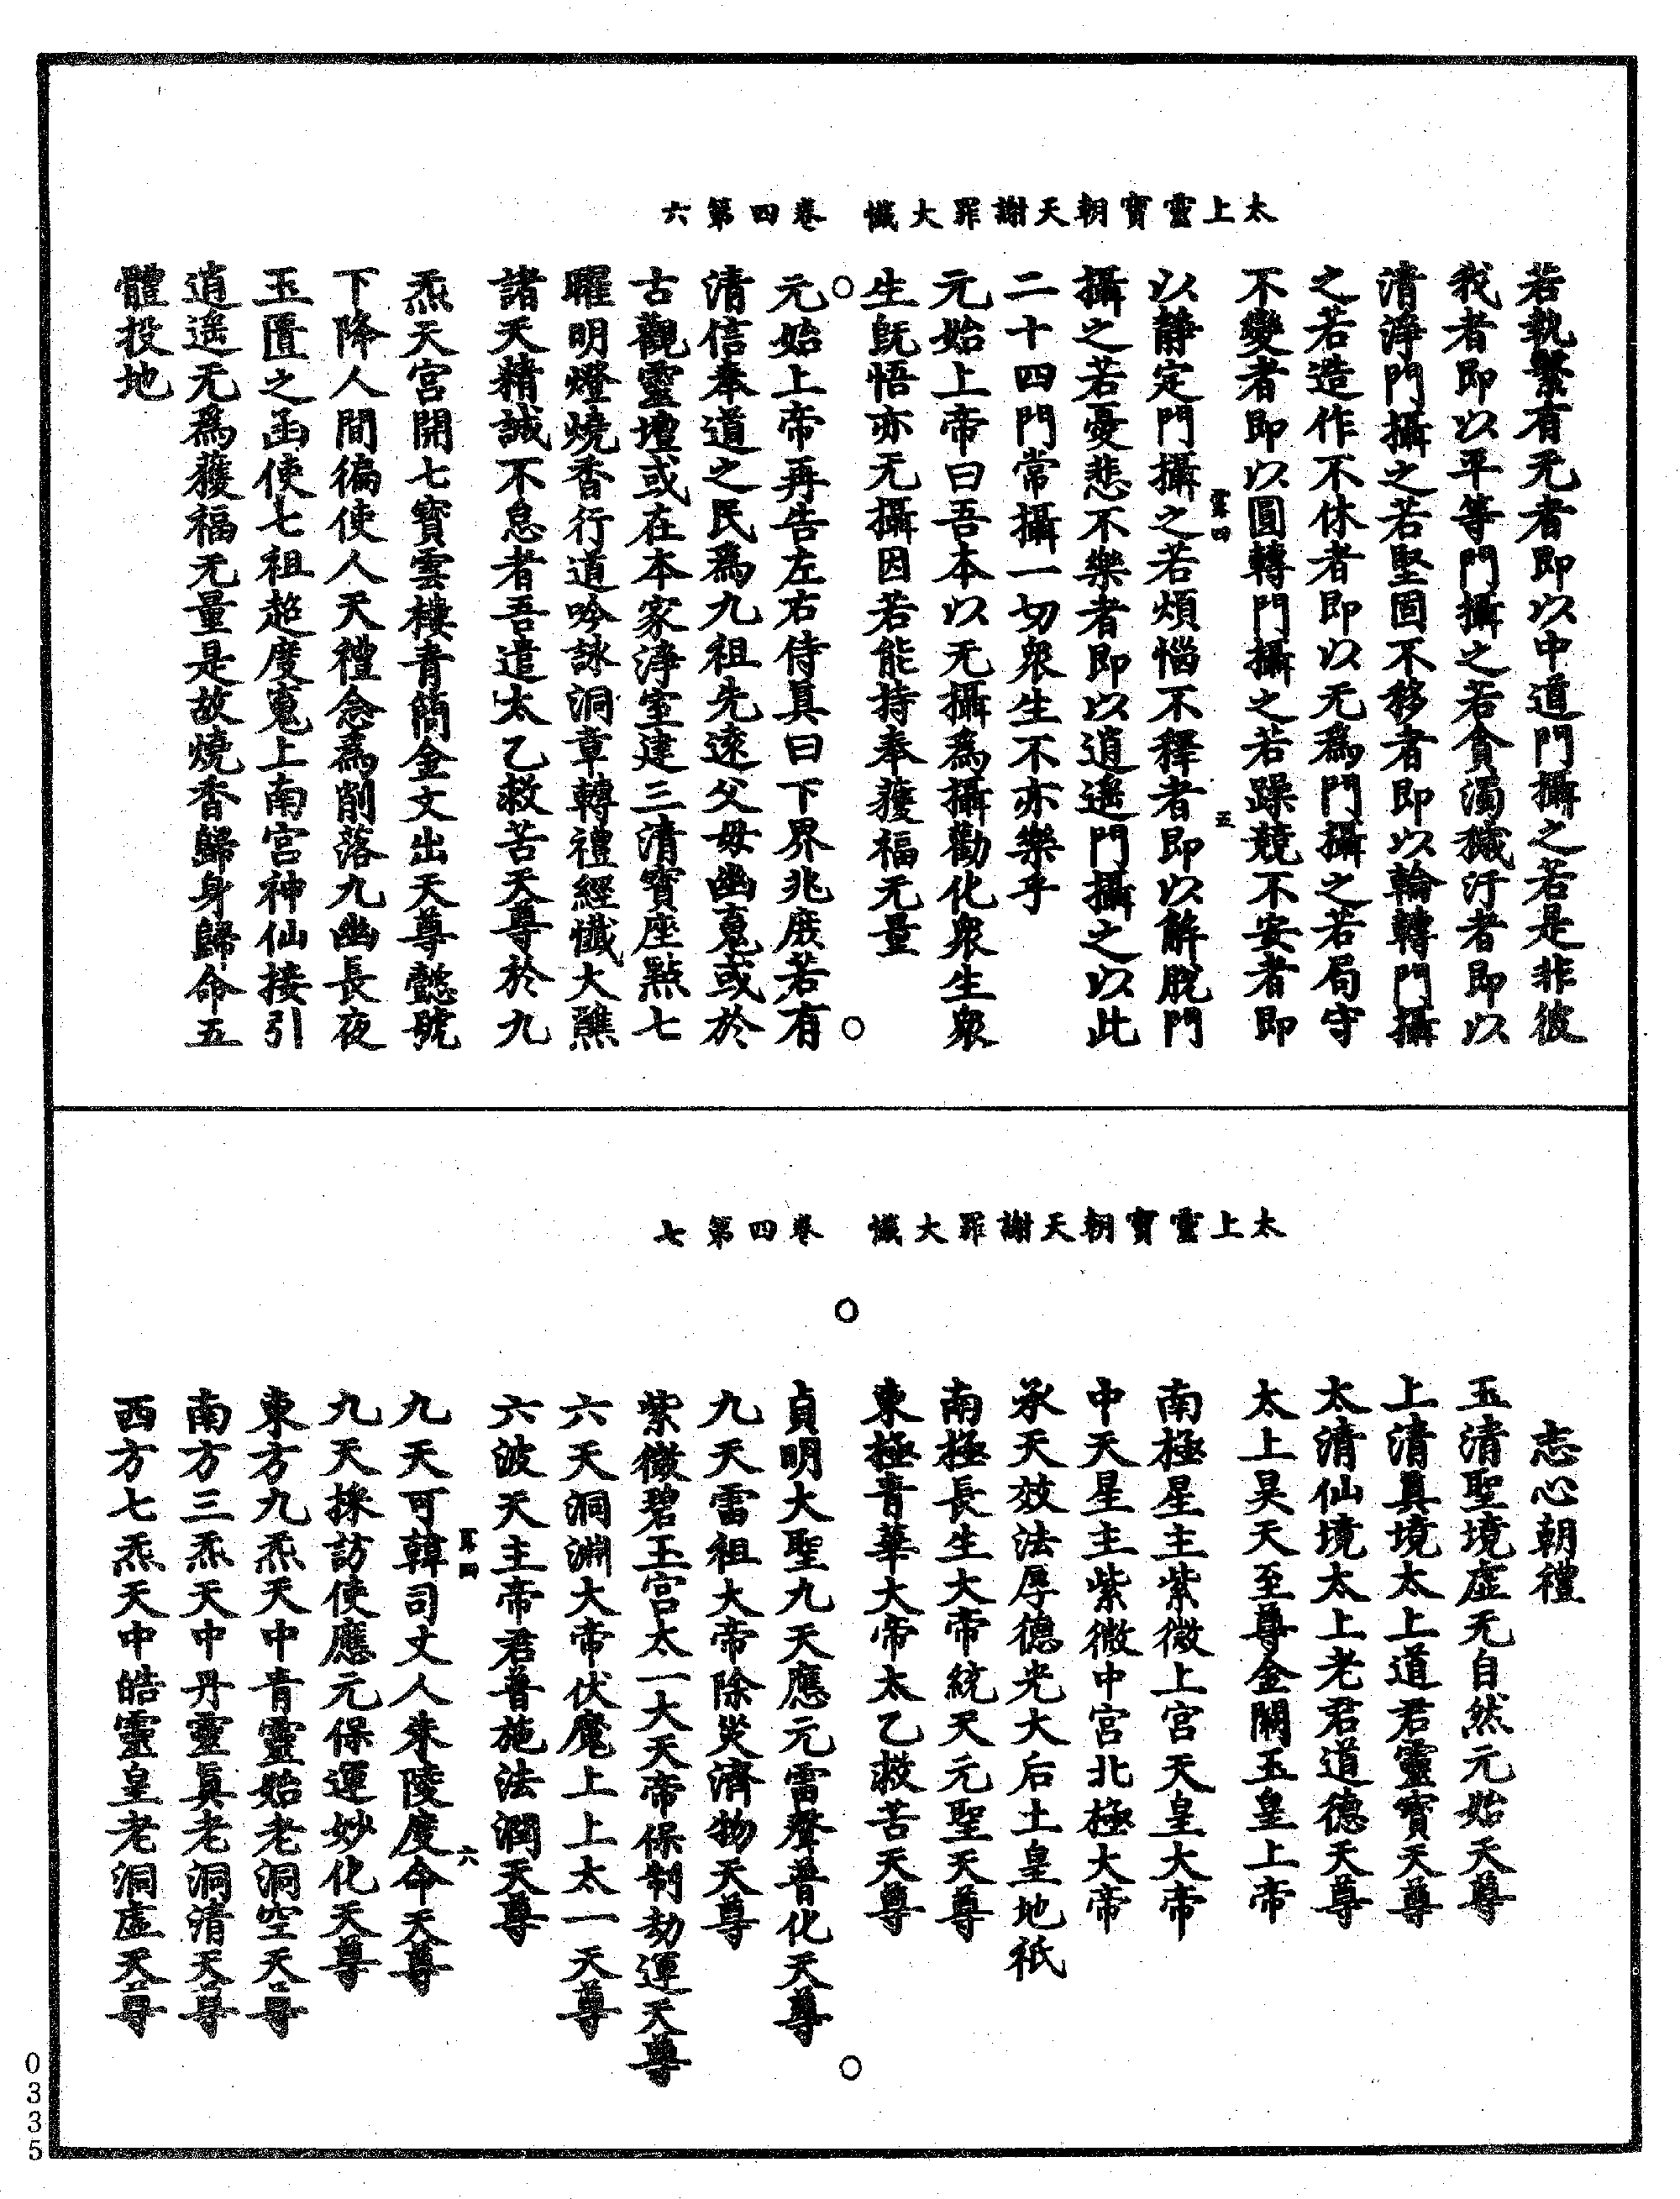 太上靈寶朝天謝罪大懺　卷四第六
若執繫有无者即以中道門攝之若是非彼
我者即以平等門攝之若貪濁穢汙者即以
清淨門攝之若堅固不移者即以輪轉門攝
之若造作不休者即以无為門攝之若局守
不變者即以圓轉門攝之若躁競不安者即
以靜定門攝之若煩惱不釋者即以解脫門
攝之若憂悲不樂者即以逍遙門攝之以此
二十四門常攝一切衆生不亦樂乎
元始上帝曰吾本以无攝為攝勸化衆生衆
生旣悟亦无攝因若能持奉獲福无量
元始上帝再告左右侍真曰下界兆庶若有
清信奉道之民為九祖先遠父母幽䰟或於
古觀靈壇或在本家淨室建三清寶座點七
曜明燈燒香行道吟詠洞章轉禮經懺大醮
諸天精誠不怠者吾遣太乙救苦天尊於九
炁天宮開七寶雲樓青簡金文出天尊懿號
下降人間徧使人天禮念為削落九幽長夜
玉匱之函使七祖超度䰟上南宮神仙接引
逍遙无為獲福无量是故燒香歸身歸命五
體投地
太上靈寶朝天謝罪大懺　卷四第七
志心朝禮
玉清聖境虛无自然元始天尊
上清真境太上道君靈寶天尊
太清仙境太上老君道德天尊
太上昊天至尊金闕玉皇上帝
南極星主紫微上宮天皇大帝
中天星主紫微中宮北極大帝
承天效法厚德光大后土皇地祇
南極長生大帝統天元聖天尊
東極青華大帝太乙救苦天尊
貞明大聖九天應元雷聲普化天尊
九天雷祖大帝除災濟物天尊
紫微碧玉宮太一大天帝保制劫運天尊
六天洞淵大帝伏魔上上太一天尊
六波天主帝君普施法潤天尊
九天可韓司丈人朱陵度命天尊
九天採訪使應元保運妙化天尊
東方九炁天中青靈始老洞空天尊
南方三炁天中丹靈真老洞清天尊
西方七炁天中皓靈皇老洞虛天尊
0335